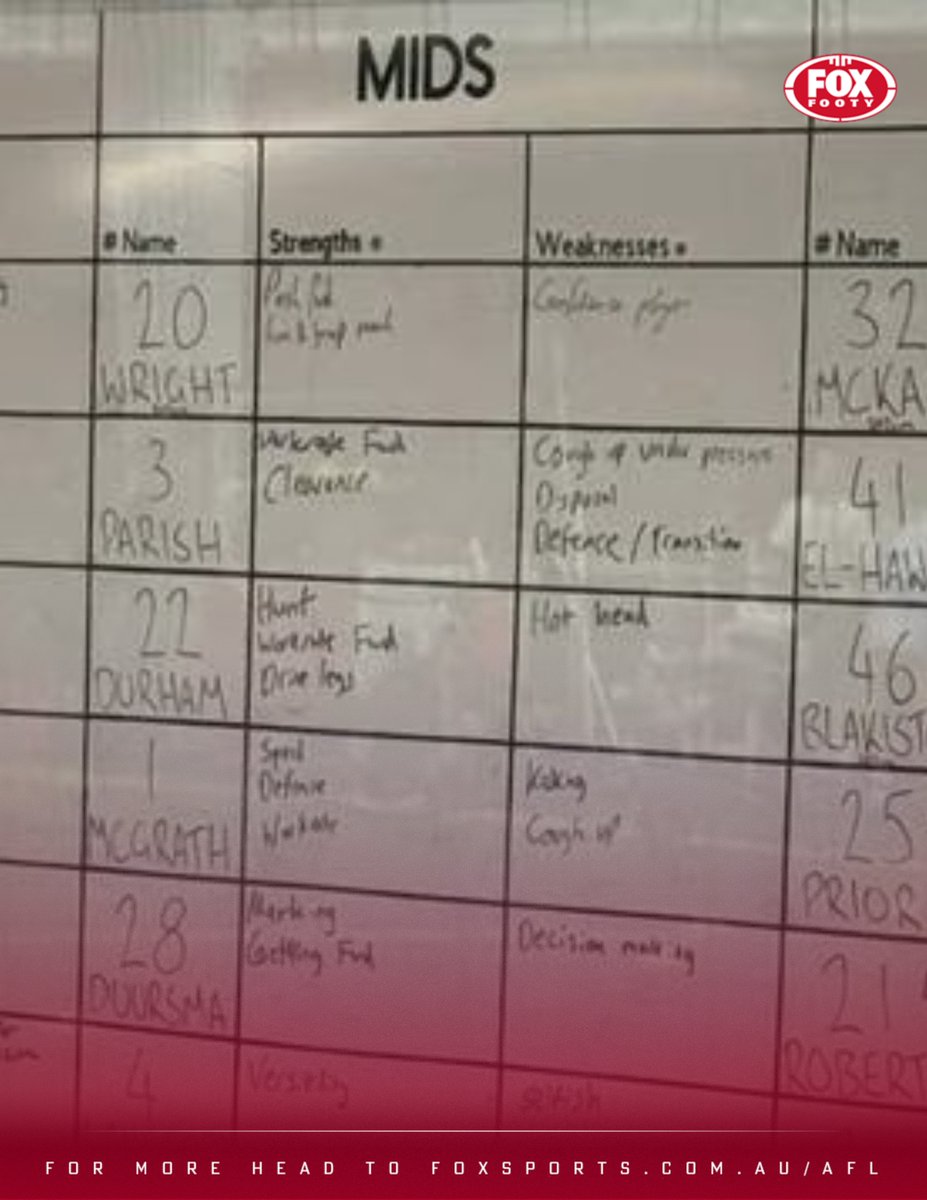 MIDS
FOX
FOOTY
# Name
Strengths
Weaknesses
# Name
20
WRIGHT
Push Fwd
Confidence player
32
MCKA
3
PARISH
Workrate Fwd
Clearance
Cough up under pressure
Disposal
Defence/Transition
41
EL-HAW
22
DURHAM
Hunt
Workrate Fwd
Drive legs
Hot head
46
BLAKIST
1
MCGRATH
Speed
Defense
Workrate
Kicking
Cough up
25
PRIOR
28
DUURSMA
Marking
Getting Fwd
Decision making
21
ROBERT
4
Versatility
Selfish
FOR MORE HEAD TO FOXSPORTS.COM.AU/AFL